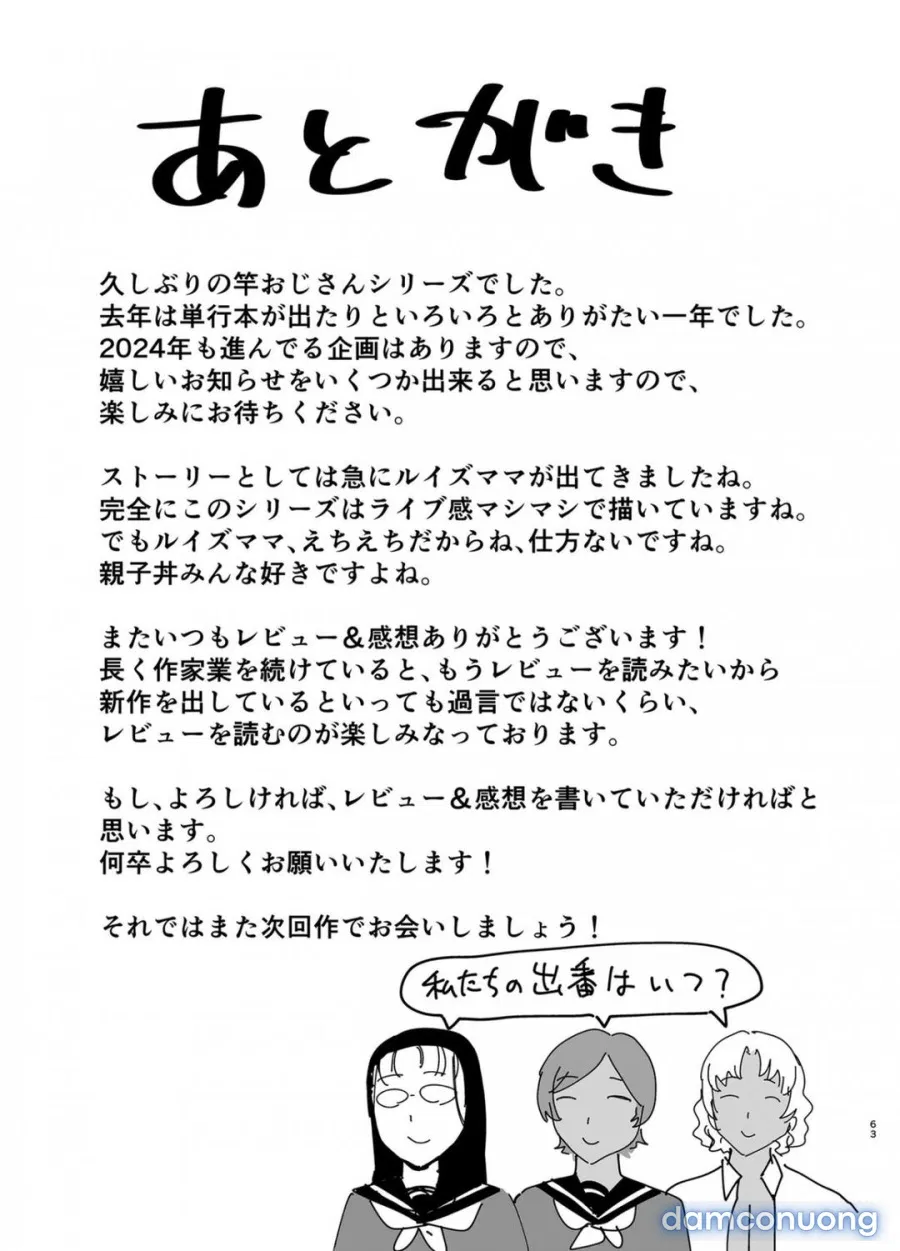 あとがき
久しぶりの竿おじさんシリーズでした。
去年は単行本が出たりといろいろとありがたい一年でした。
2024年も進んでる企画はありますので、
嬉しいお知らせをいくつか出来ると思いますので、
楽しみにお待ちください。
ストーリーとしては急にルイズママが出てきましたね。
完全にこのシリーズはライブ感マシマシで描いていますね。
でもルイズママ、えちえちだからね、仕方ないですね。
親子丼みんな好きですよね。
またいつもレビュー＆感想ありがとうございます！
長く作家業を続けていると、もうレビューを読みたいから
新作を出しているといっても過言ではないくらい、
レビューを読むのが楽しみなっております。
もし、よろしければ、レビュー＆感想を書いていただければと
思います。
何卒よろしくお願いいたします！
それではまた次回作でお会いしましょう！
私たちの出番はいつ？
63
damconuong